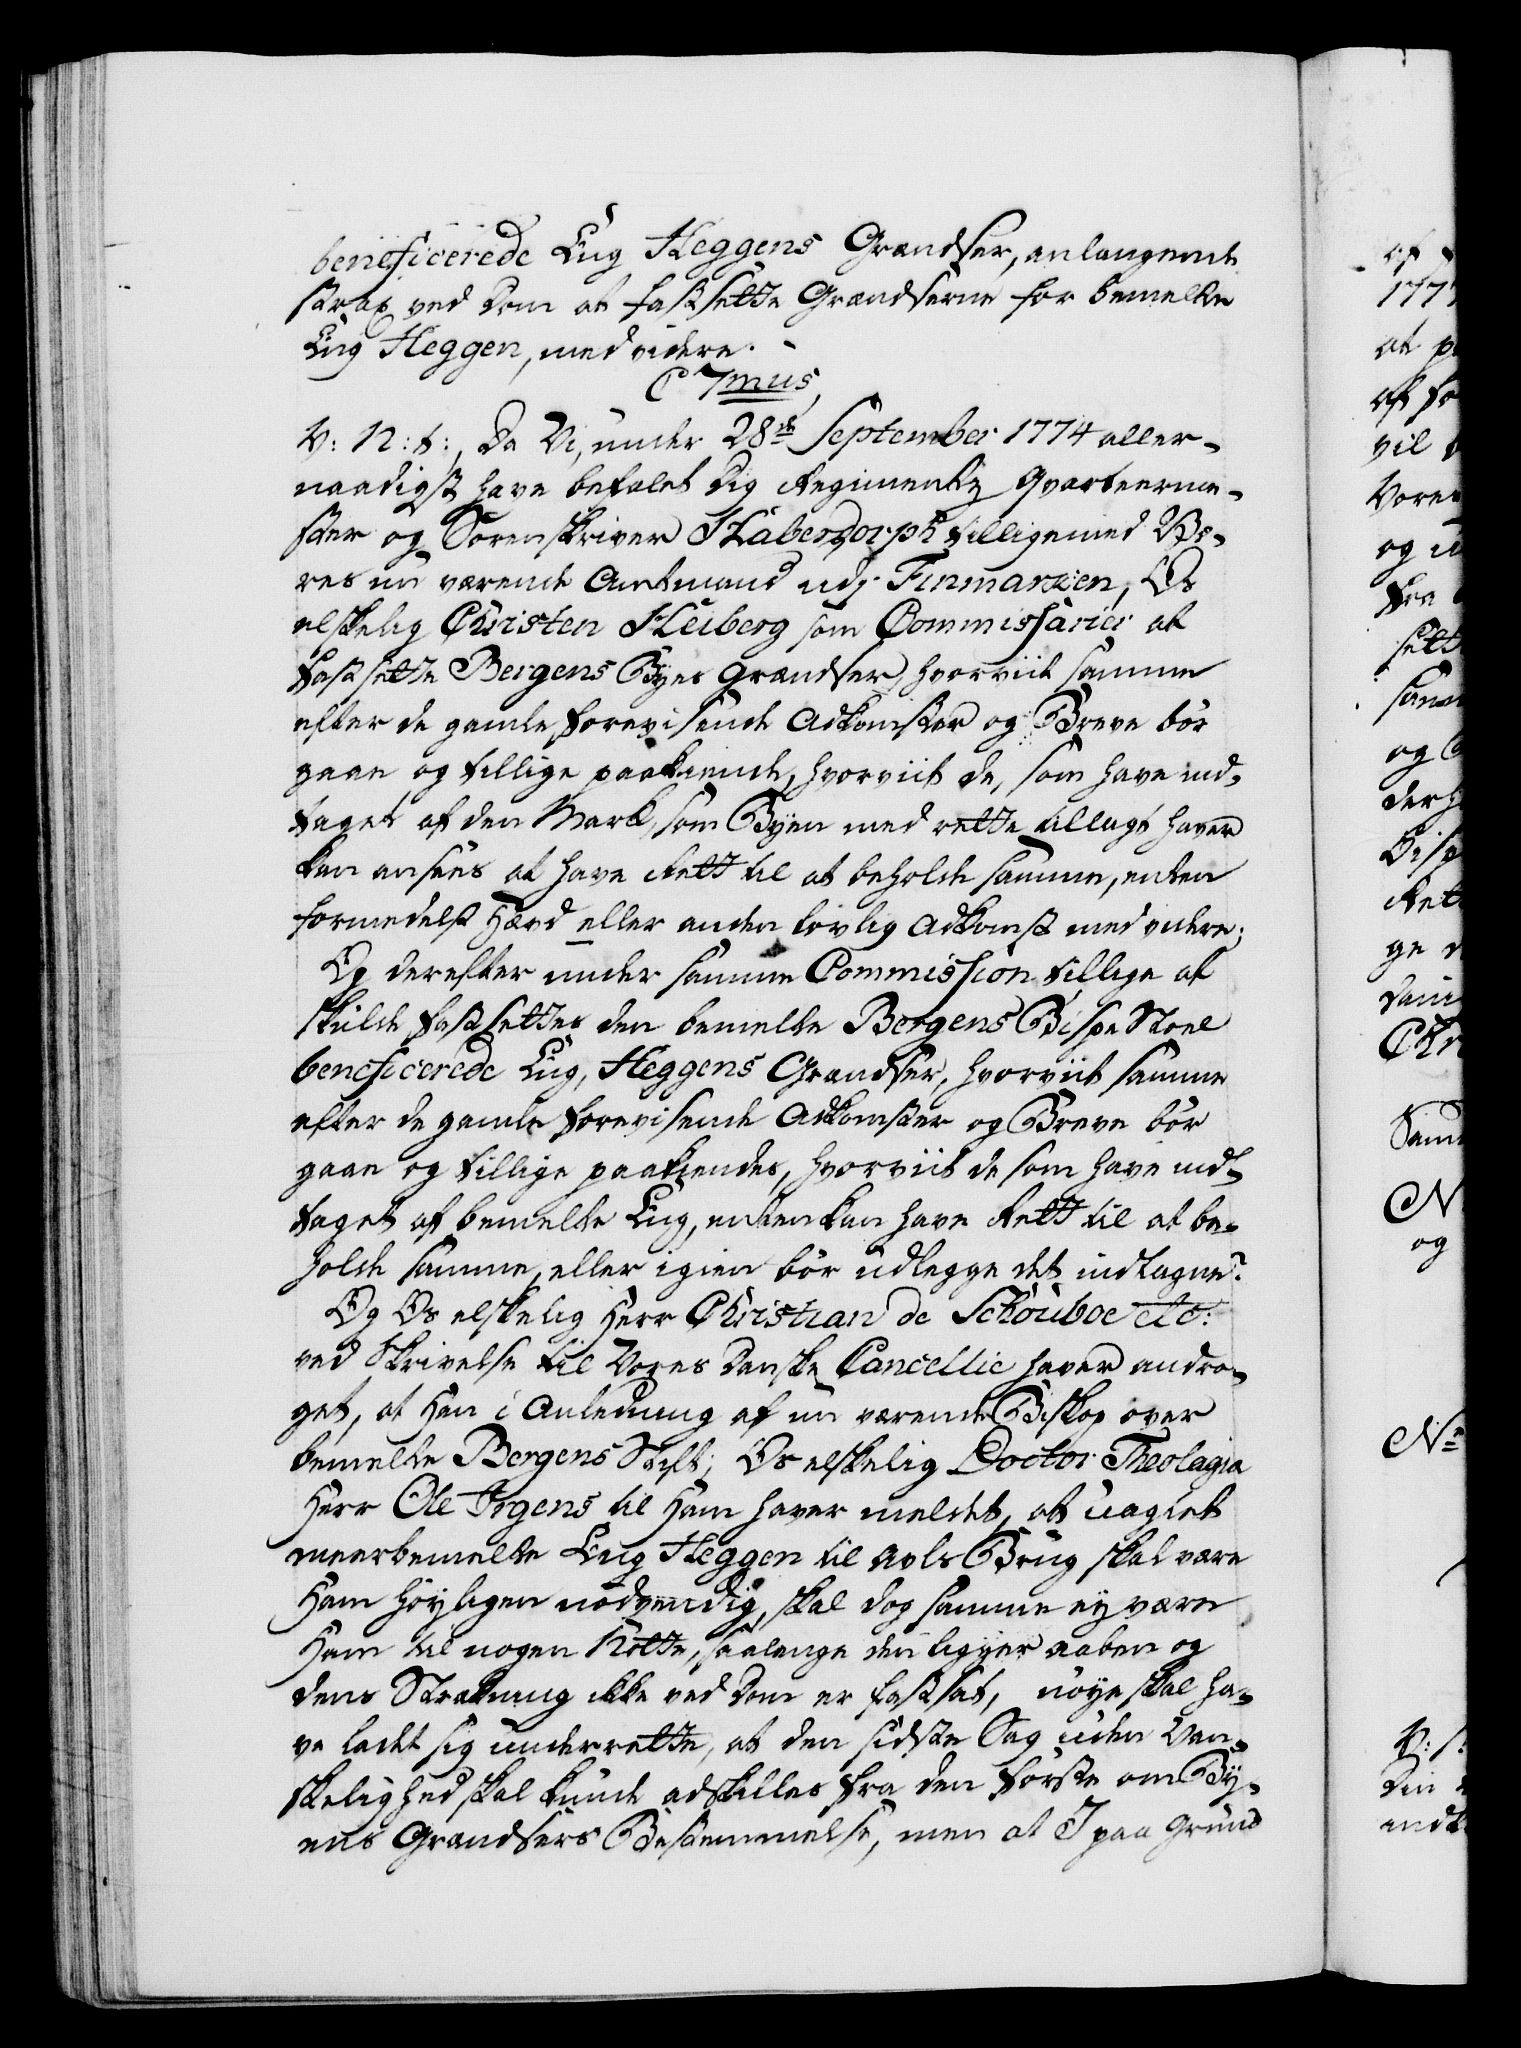 beneficerede Eng Heggens Grændser, anlangende
strax ved Dom at fastsette Grændserne for bemelte
Eng Heggen, med videre.
C 7mus,
V: N: t:, Da Vi, under 28de September 1774 aller-
naadigst have befalet Dig Regiments Qvarteerme-
ster og Sorenskriver Haberdorph tilligemed Vo-
res nu værende Amtmand udj Finmarken, Os
elskelig Christen Heiberg som Commissarier at
fastsette Bergens Byes Grændser, hvorviit samme
efter de gamle forevisende Adkomster og Breve bör
gaae, og tillige paakiende, hvorviit de, som have ind-
taget af den Mark, som Byen med rette tillagt haver
kan ansees at have Rett til at beholde samme, enten
formedelst Hævd eller anden lovlig Adkomst med videre;
Og derefter under samme Commission tillige at
skulde fastsettes den bemelte Bergens Bispe Stoel
beneficerede Eng, Heggens Grændser, hvorviit samme
efter de gamle forevisende Adkomster og Breve bör
gaae og tillige paakiendes, hvorviit de som have ind-
taget af bemelte Eng, enten kan have Rett til at be-
holde samme, eller igien bör udlegge det indtagne.
Og Os elskelig Herr Christian de Schouboe etc:
ved Skrivelse til Vores Danske Cancellie haver andra-
get, at Han i Anledning af nu værende Biskop over
bemelte Bergens Stift, Os elskelig Doctor Theologia
Herr Ole Irgens til Ham haver meldet, at uagtet
meerbemelte Eng Heggen til Avls Brug skal være
Ham höyligen nödvendig, skal dog samme ey være
Ham til nogen Nötte, saalenge den ligger aaben og
dens Strækning ikke ved Dom er fastsat, nöye skal ha-
ve ladet sig underrette, at den sidste Sag uden Van-
skelighed skal kunde adskilles fra den förste om By-
ens Grændsers Bestemmelse, men at I paa Grund